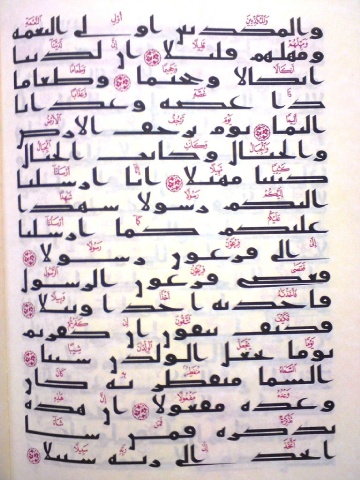 والمكذبين اولى النعمه
ومهلهم قليلا ان لدينا
انكالا وجحيما وطعاما
ذا غصه وعذابا
اليما يوم ترجف الارض
والجبال وكانت الجبال
كثيبا مهيلا انا ارسلنا
اليكم رسولا شهدا
عليكم كما ارسلنا
الى فرعون رسولا
فعصى فرعون الرسول
فاخذنه اخذا وبيلا
فكيف تتقون ان كفرتم
يوما يجعل الولدن شيبا
السما منفطر به كان
وعده مفعولا ان هذه
تذكره فمن شا
اتخذ الى ربه سبيلا